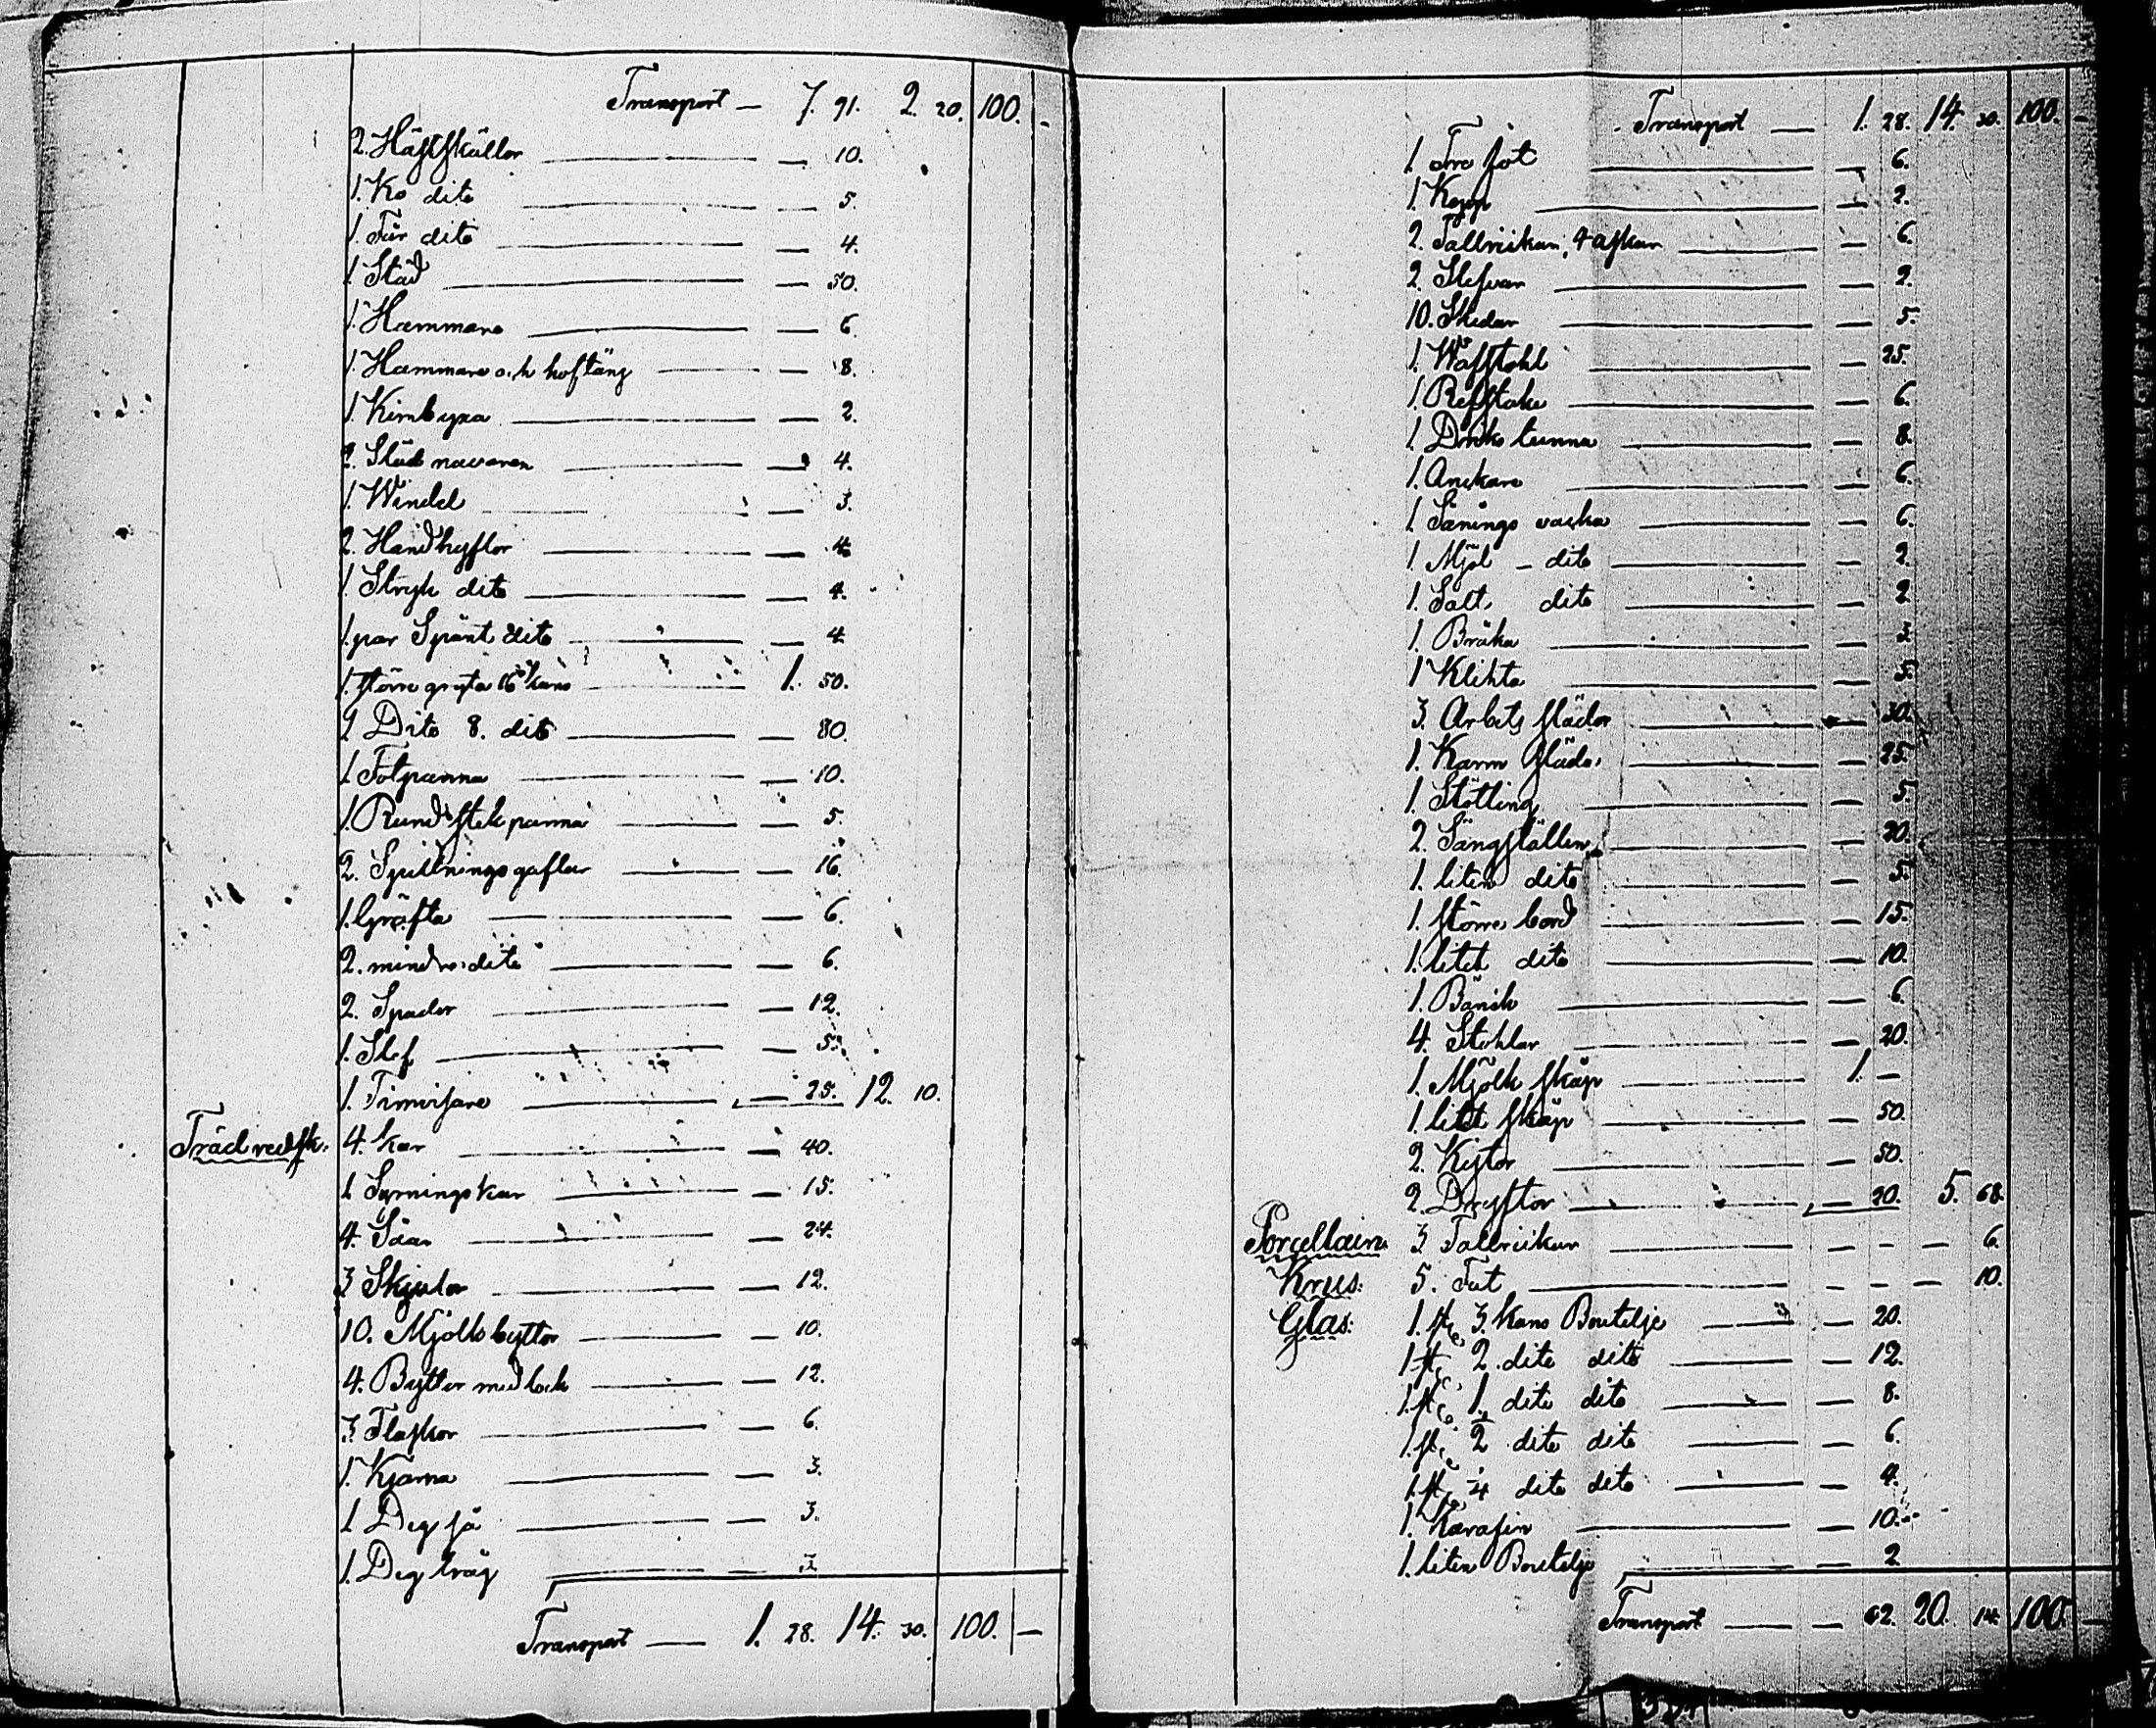 Transport — 7. 91. 2. 20. 100. —
2. Hästskällor — 10.
1. Ko dito — 5.
1. Får dito — 4.
1. Städ — 50.
1. Hammare — 6.
1. Hammare och hoftång — 8.
1. Kimbyxa — 2.
2. Släd navaren — 4.
1. Windel — 3.
2. Handhyflor — 4.
1. Stryk dito — 4.
1. par Spånt dito — 4.
1. större gryta 16 kans — 1. 50.
2 Dito 8. dito — 80.
1 Fotpanna — 10.
1. Rund stekpanna — 5.
2. Spillnings gaflar — 16.
1. Gräfta — 6.
2. mindre dito — 6.
2. Spador — 12.
1. Slef — 5.
1. Timvisare — 25. 12. 10.
Träd redsk. 4. kar — 40.
1 Syrningskar — 15.
4. Såar — 24.
3 Skjulor — 12.
10. Mjölkbyttor — 10.
4. Byttor med lock — 12.
3. Flaskor — 6.
1. Kjärna — 3.
1 Deg så — 3.
1. Deg tråg — 3
Transport — 1. 28. 14. 30. 100. —
Transport — 1. 28. 14. 30. 100. —
1. Tre fot — 6.
1. Kopp — 2.
2. Tallrickan, 4 askar — 6.
2. Slefvar — 2.
10. Skedar — 5.
1. Wäfstohl — 25.
1. Refstake — 6.
1. Dricks tunna — 8.
1. Anckare — 6.
1. Sånings vacka — 6.
1. Mjöl — dito — 2.
1. Salt dito — 2
1. Bråka — 2
1 Klikta — 5.
3. Arbets slädor — 30.
1. Karm Släde — 25.
1. Stötting — 5.
2. Sängställen — 20.
1. liten dito — 5.
1. större bord — 15.
1. litet dito — 10.
1. Bänk — 6.
4. Stohlar — 20.
1. Mjölk skåp — 1. —
1. litet skåp — 50.
2. Kistor — 50.
2. Dryftor — 20. 5. 68.
Porcellain 3. Tallrickar — 6.
Krus: 5. Fat — 10.
Glas: 1. st. 3. kans Boutelje — 20.
1 st. 2. dito dito — 12.
1. st. 1. dito dito — 8.
1. st. ½ dito dito — 6.
1. st. ¼ dito dito — 4.
1. Karafin — 10.
1. liten Boutelje — 2
Transport — 62. 20. 14. 100. —